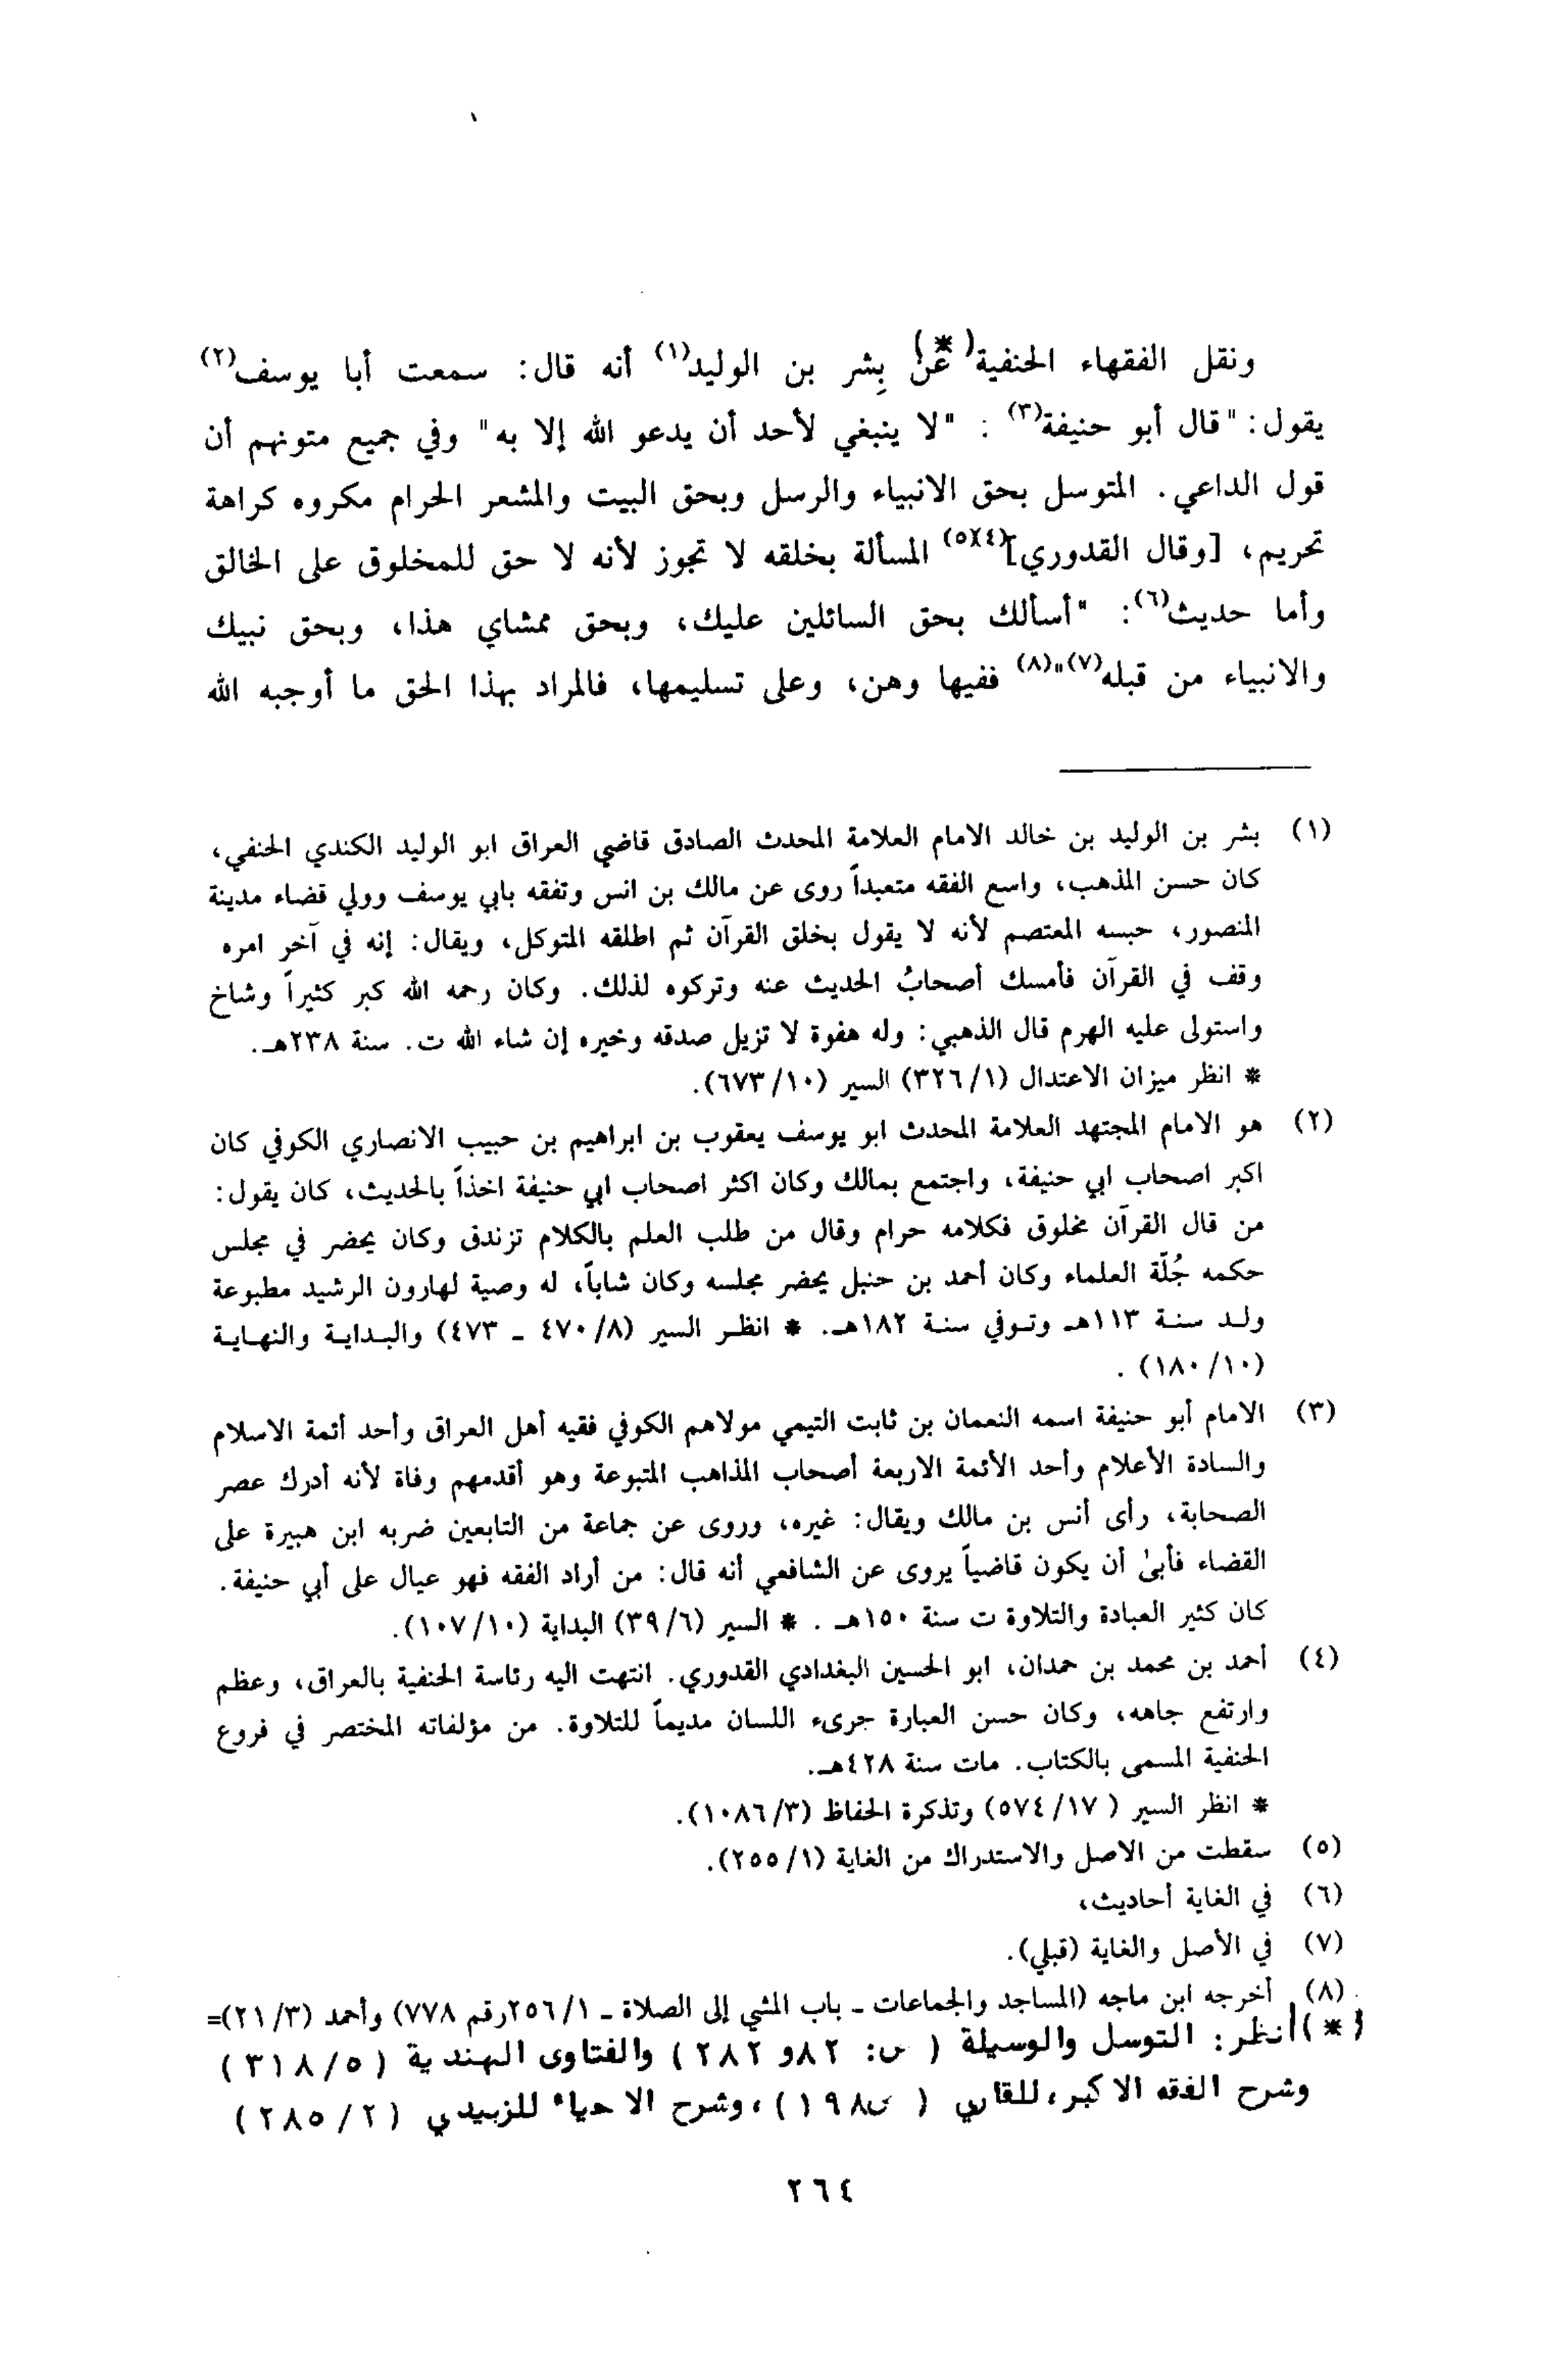 ونقل الفقهاء الحنفية(*) عن بِشر بن الوليد(١) أنه قال: سمعت أبا يوسف(٢)
يقول: "قال أبو حنيفة(٣) : "لا ينبغي لأحد أن يدعو الله إلا به" وفي جميع متونهم أن
قول الداعي. المتوسل بحق الانبياء والرسل وبحق البيت والمشعر الحرام مكروه كراهة
تحريم، [وقال القدوري](٤)(٥) المسألة بخلقه لا تجوز لأنه لا حق للمخلوق على الخالق
وأما حديث(٦): "أسألك بحق السائلين عليك، وبحق ممشاي هذا، وبحق نبيك
والانبياء من قبله(٧)"(٨) ففيها وهن، وعلى تسليمها، فالمراد بهذا الحق ما أوجبه الله
(١) بشر بن الوليد بن خالد الامام العلامة المحدث الصادق قاضي العراق ابو الوليد الكندي الحنفي،
كان حسن المذهب، واسع الفقه متعبداً روى عن مالك بن انس وتفقه بابي يوسف وولي قضاء مدينة
المنصور، حبسه المعتصم لأنه لا يقول بخلق القرآن ثم اطلقه المتوكل، ويقال: إنه في آخر امره
وقف في القرآن فأمسك أصحابُ الحديث عنه وتركوه لذلك. وكان رحمه الله كبر كثيراً وشاخ
واستولى عليه الهرم قال الذهبي: وله هفوة لا تزيل صدقه وخيره إن شاء الله ت. سنة ٢٣٨هـ.
* انظر ميزان الاعتدال (٣٢٦/١) السير (٦٧٣/١٠).
(٢) هو الامام المجتهد العلامة المحدث ابو يوسف يعقوب بن ابراهيم بن حبيب الانصاري الكوفي كان
اكبر اصحاب ابي حنيفة، واجتمع بمالك وكان اكثر اصحاب ابي حنيفة اخذاً بالحديث، كان يقول:
من قال القرآن مخلوق فكلامه حرام وقال من طلب العلم بالكلام تزندق وكان يحضر في مجلس
حكمه جُلّة العلماء وكان أحمد بن حنبل يحضر مجلسه وكان شاباً، له وصية لهارون الرشيد مطبوعة
ولد سنة ١١٣هـ وتوفي سنة ١٨٢هـ. * انظر السير (٤٧٠/٨ - ٤٧٣) والبداية والنهاية
(١٨٠/١٠) .
(٣) الامام أبو حنيفة اسمه النعمان بن ثابت التيمي مولاهم الكوفي فقيه أهل العراق وأحد أئمة الاسلام
والسادة الأعلام وأحد الأئمة الاربعة أصحاب المذاهب المتبوعة وهو أقدمهم وفاة لأنه أدرك عصر
الصحابة، رأى أنس بن مالك ويقال: غيره، وروى عن جماعة من التابعين ضربه ابن هبيرة على
القضاء فأبىٰ أن يكون قاضياً يروى عن الشافعي أنه قال: من أراد الفقه فهو عيال على أبي حنيفة.
كان كثير العبادة والتلاوة ت سنة ١٥٠هـ . * السير (٣٩/٦) البداية (١٠٧/١٠).
(٤) أحمد بن محمد بن حمدان، ابو الحسين البغدادي القدوري. انتهت اليه رئاسة الحنفية بالعراق، وعظم
وارتفع جاهه، وكان حسن العبارة جرىء اللسان مديماً للتلاوة. من مؤلفاته المختصر في فروع
الحنفية المسمى بالكتاب. مات سنة ٤٢٨هـ.
* انظر السير ( ٥٧٤/١٧) وتذكرة الحفاظ (١٠٨٦/٣).
(٥) سقطت من الاصل والاستدراك من الغاية (٢٥٥/١).
(٦) في الغاية أحاديث،
(٧) في الأصل والغاية (قبلي).
(٨) أخرجه ابن ماجه (المساجد والجماعات - باب المشي إلى الصلاة - ٢٥٦/١رقم ٧٧٨) وأحمد (٢١/٣)=
(*) أنظر: التوسل والوسيلة ( ص: ٨٢و ٢٨٢ ) والفتاوى الهندية ( ٣١٨/٥ )
وشرح الفقه الاكبر، للقاري ( ص١٩٨ )، وشرح الاحياء للزبيدي ( ٢٨٥/٢ )
٢٦٤